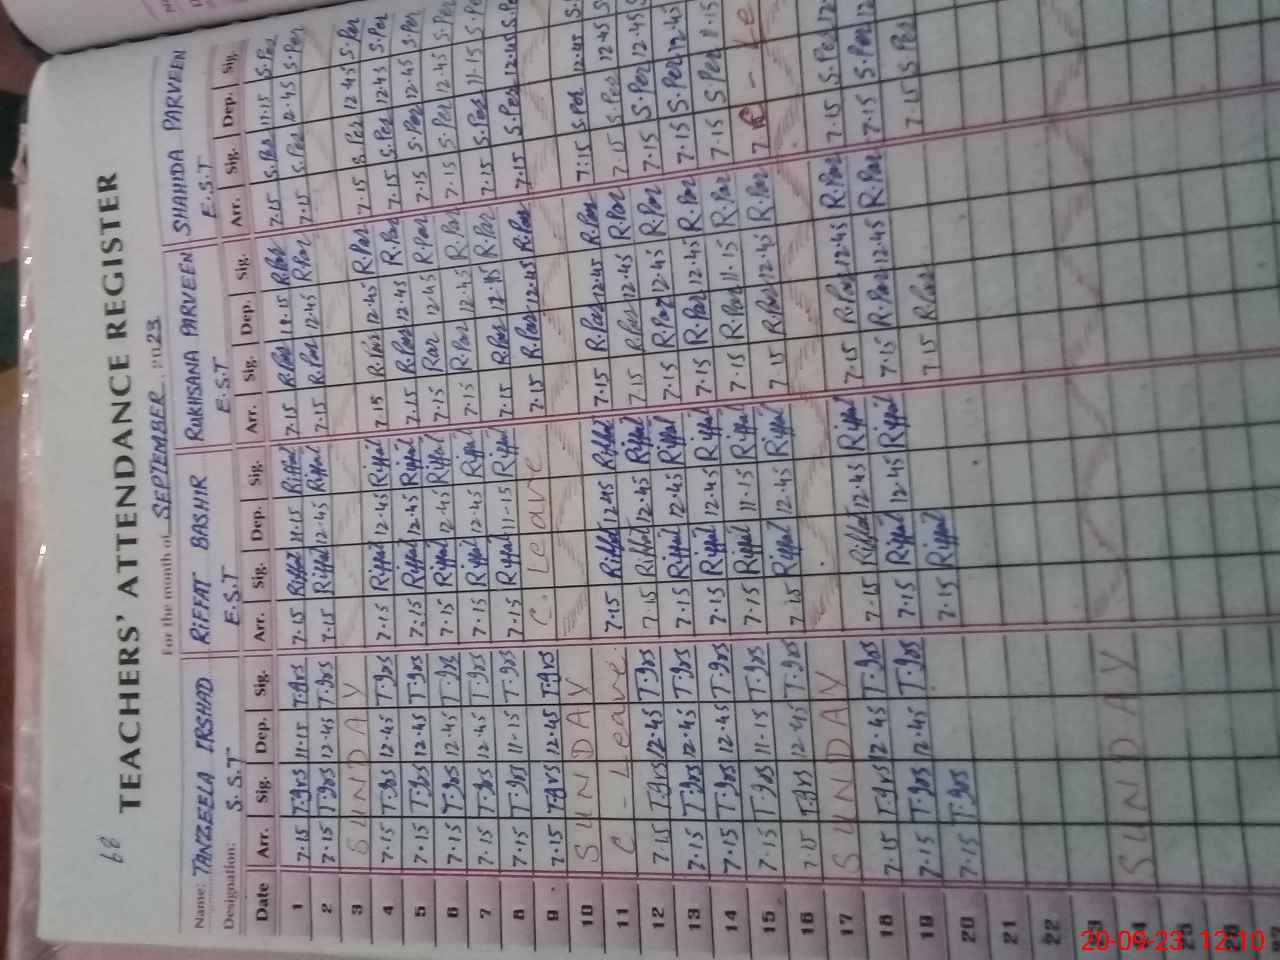 68
TEACHERS' ATTENDANCE REGISTER
For the month of SEPTEMBER 2023
Name: TANZEELA IRSHAD RIFFAT BASHIR RUKHSANA PARVEEN SHAHIDA PARVEEN
Designation: S.S.T E.S.T E.S.T E.S.T
Date Arr. Sig. Dep. Sig. Arr. Sig. Dep. Sig. Arr. Sig. Dep. Sig. Arr. Sig. Dep. Sig.
1 7.15 T.grs 11.15 T.grs 7.15 Riffat 11.15 Riffat 7.15 R.Par 11.15 R.Par 7.15 S.Par 11.15 S.Par
2 7.15 T.grs 12.45 T.grs 7.15 Riffat 12.45 Riffat 7.15 R.Par 12.45 R.Par 7.15 S.Par 12.45 S.Par
3 SUNDAY
4 7.15 T.grs 12.45 T.grs 7.15 Riffat 12.45 Riffat 7.15 R.Par 12.45 R.Par 7.15 S.Par 12.45 S.Par
5 7.15 T.grs 12.45 T.grs 7.15 Riffat 12.45 Riffat 7.15 R.Par 12.45 R.Par 7.15 S.Par 12.45 S.Par
6 7.15 T.grs 12.45 T.grs 7.15 Riffat 12.45 Riffat 7.15 Rar 12.45 R.Par 7.15 S.Par 12.45 S.Par
7 7.15 T.grs 12.45 T.grs 7.15 Riffat 12.45 Riffat 7.15 R.Par 12.45 R.Par 7.15 S.Par 12.45 S.Par
8 7.15 T.grs 11.15 T.grs 7.15 Riffat 11.15 Riffat 7.15 R.Par R.Par 7.15 S.Par 11.15 S.Par
9 7.15 T.grs 12.45 T.grs C. Leave 7.15 R.Par 12.45 R.Par 7.15 S.Par 12.45 S.Par
10 SUNDAY
11 C - Leave. 7.15 Riffat 12.45 Riffat 7.15 R.Par 12.45 R.Par 7:15 S.Par 12.45
12 7.15 T.grs 12.45 T.grs 7.15 Riffat 12.45 Riffat 7.15 R.Par 12.45 R.Par 7.15 S.Par 12.45
13 7.15 T.grs 12.45 T.grs 7.15 Riffat 12.45 Riffat 7.15 R.Par 12.45 R.Par 7.15 S.Par 12.45
14 7.15 T.grs 12.45 T.grs 7.15 Riffat 12.45 Riffat 7.15 R.Par 12.45 R.Par 7.15 S.Par 12.45
15 7.15 T.grs 11.15 T.grs 7.15 Riffat 11.15 Riffat 7.15 R.Par 11.15 R.Par 7.15 S.Par 11.15
16 7.15 T.grs 12.45 T.grs 7.15 Riffat 12.45 Riffat 7.15 R.Par 12.45 R.Par C - Le
17 SUNDAY
18 7.15 T.grs 12.45 T.grs 7.15 Riffat 12.45 Riffat 7.15 R.Par 12.45 R.Par 7.15 S.Par 12
19 7.15 T.grs 12.45 T.grs 7.15 Riffat 12.45 Riffat 7.15 R.Par 12.45 R.Par 7.15 S.Par 12
20 7.15 T.grs 7.15 Riffat 7.15 R.Par 7.15 S.Par
21
22
23
24 SUNDAY
25
26
20-09-23 12:10